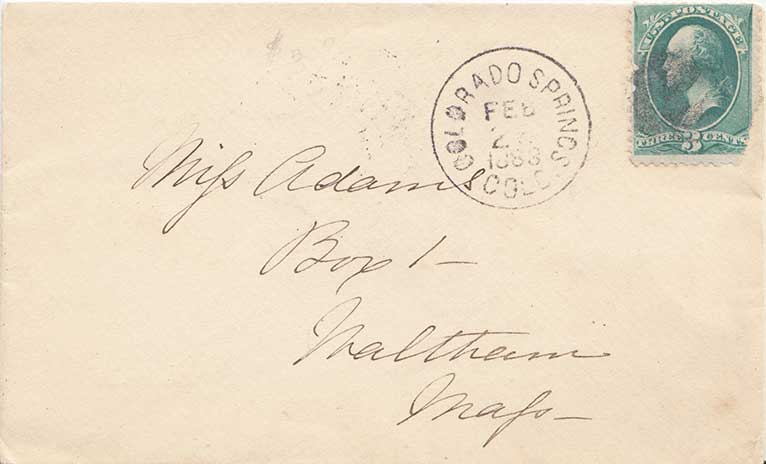 U.S. POSTAGE
THREE 3 CENTS
COLORADO SPRINGS
FEB
1883
COLO.
Miſs Adams
Box 1 –
Waltham
Maſs –